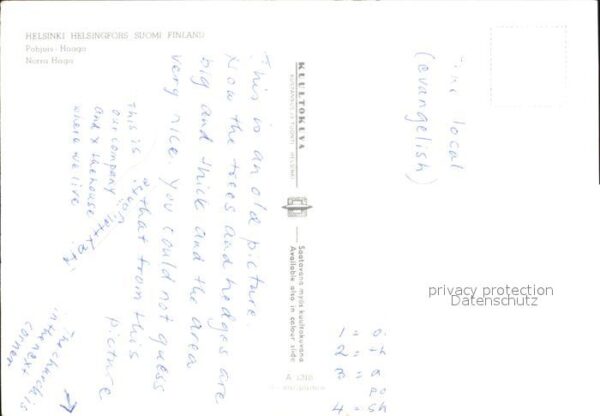 HELSINKI HELSINGFORS SUOMI FINLAND
Pohjois-Haaga
Norra Haga
This is an old picture.
Now the trees and hedges are
big and thick and the area
very nice. You could not guess
that from this
picture
This is
our company
and x the house
where we live
The church is
in the next
corner
KUULTOKUVA
KUSTANNUS JA TUONTI HELSINKI
Saatavana myös kuultokuvana
Available also in colour slide
local
(evangelish)
privacy protection
Datenschutz
1
2
4